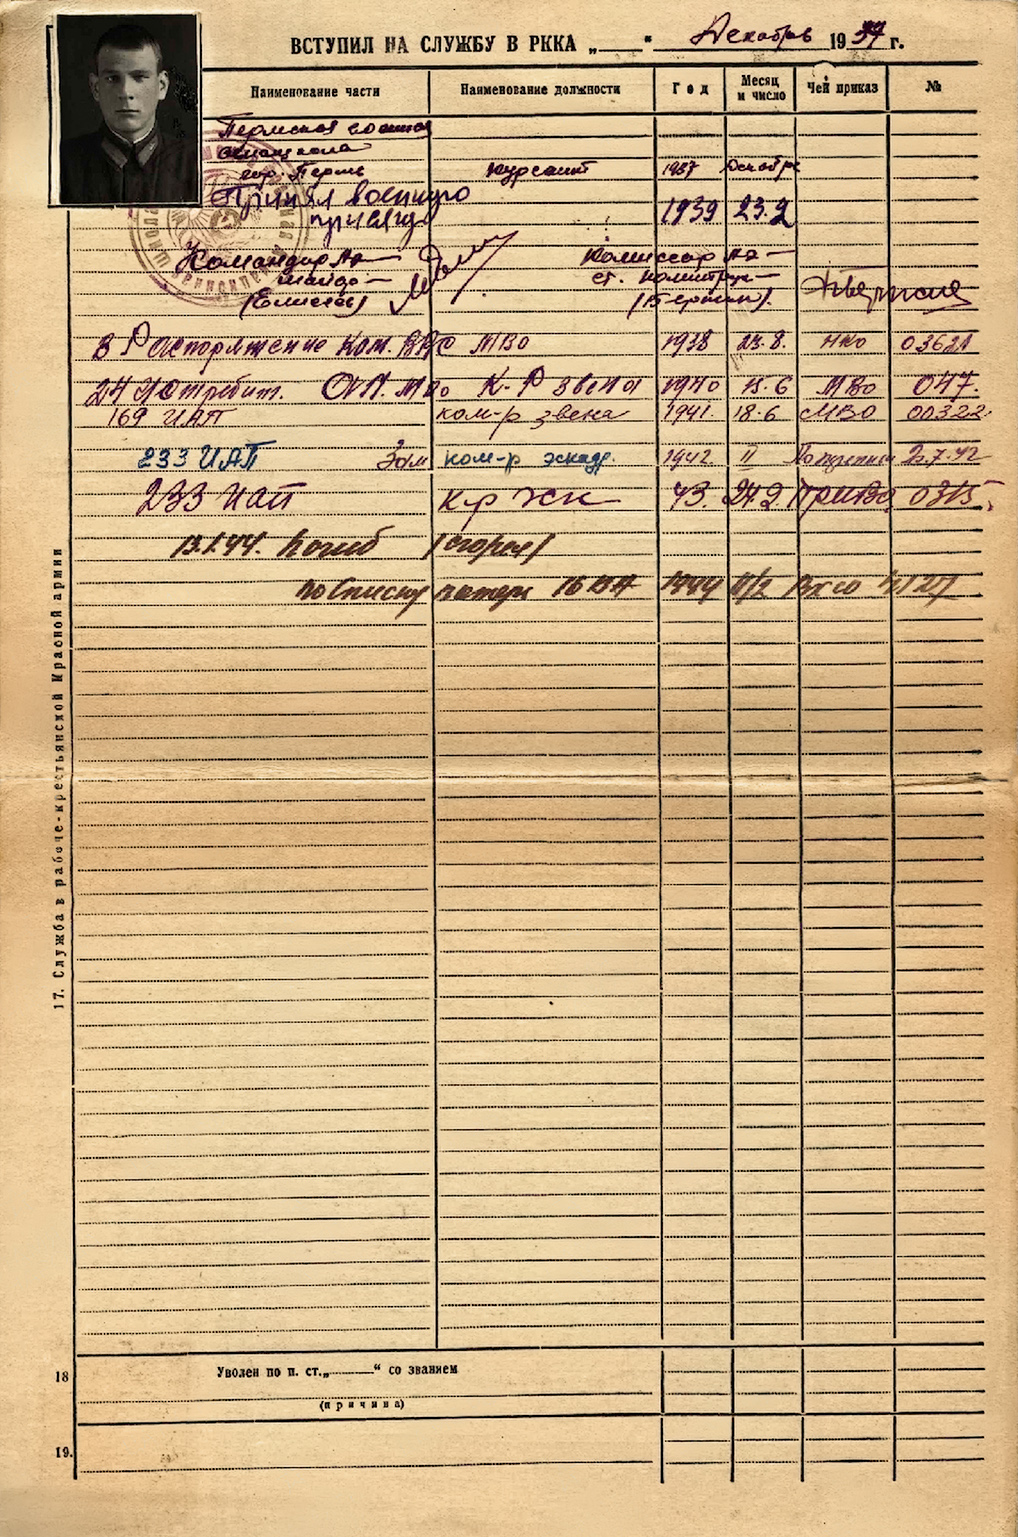 ВСТУПИЛ НА СЛУЖБУ В РККА „ “ Декабрь 1937 г.
Наименование части Наименование должности Год Месяц и число Чей приказ №
Пермская военная
авиашкола
гор. Пермь курсант 1937 Декабрь
Принял военную
присягу 1939 23.2
Командир АЭ Комиссар АЭ
майор ст. политрук
В Распоряжение Ком. ВВС МВО 1938 23.8. НКО 03621
24 Истребит. АП. МВО К-Р звена 1940 13.6 МВО 047.
169 ИАП ком-р звена 1941. 18.6 МВО 00322
233 ИАП Зам ком-р эскадр. 1942. II 20.7.42
233 иап к-р 43. 24.2. ПриВО 0315
13.1.44. Погиб /сгорел/
по Списку потерь 16 ВА 1944
17. Служба в рабоче-крестьянской Красной армии
18 Уволен по п. ст. „ “ со званием
(причина)
19.